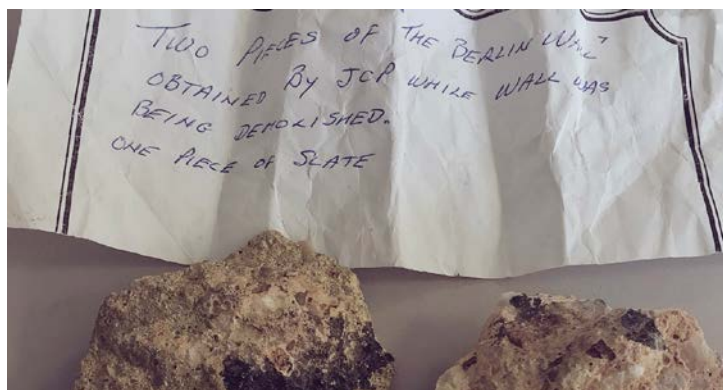 TWO PIECES OF THE BERLIN WALL
OBTAINED BY JCP WHILE WALL WAS
BEING DEMOLISHED.
ONE PIECE OF SLATE